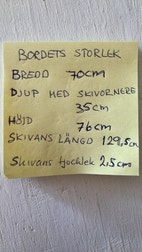 BORDETS STORLEK
BREDD 70cm
DJUP MED SKIVORNERE
35cm
HÖJD
76cm
SKIVANS LÄNGD 129,5cm
Skivans tjocklek 2,5cm